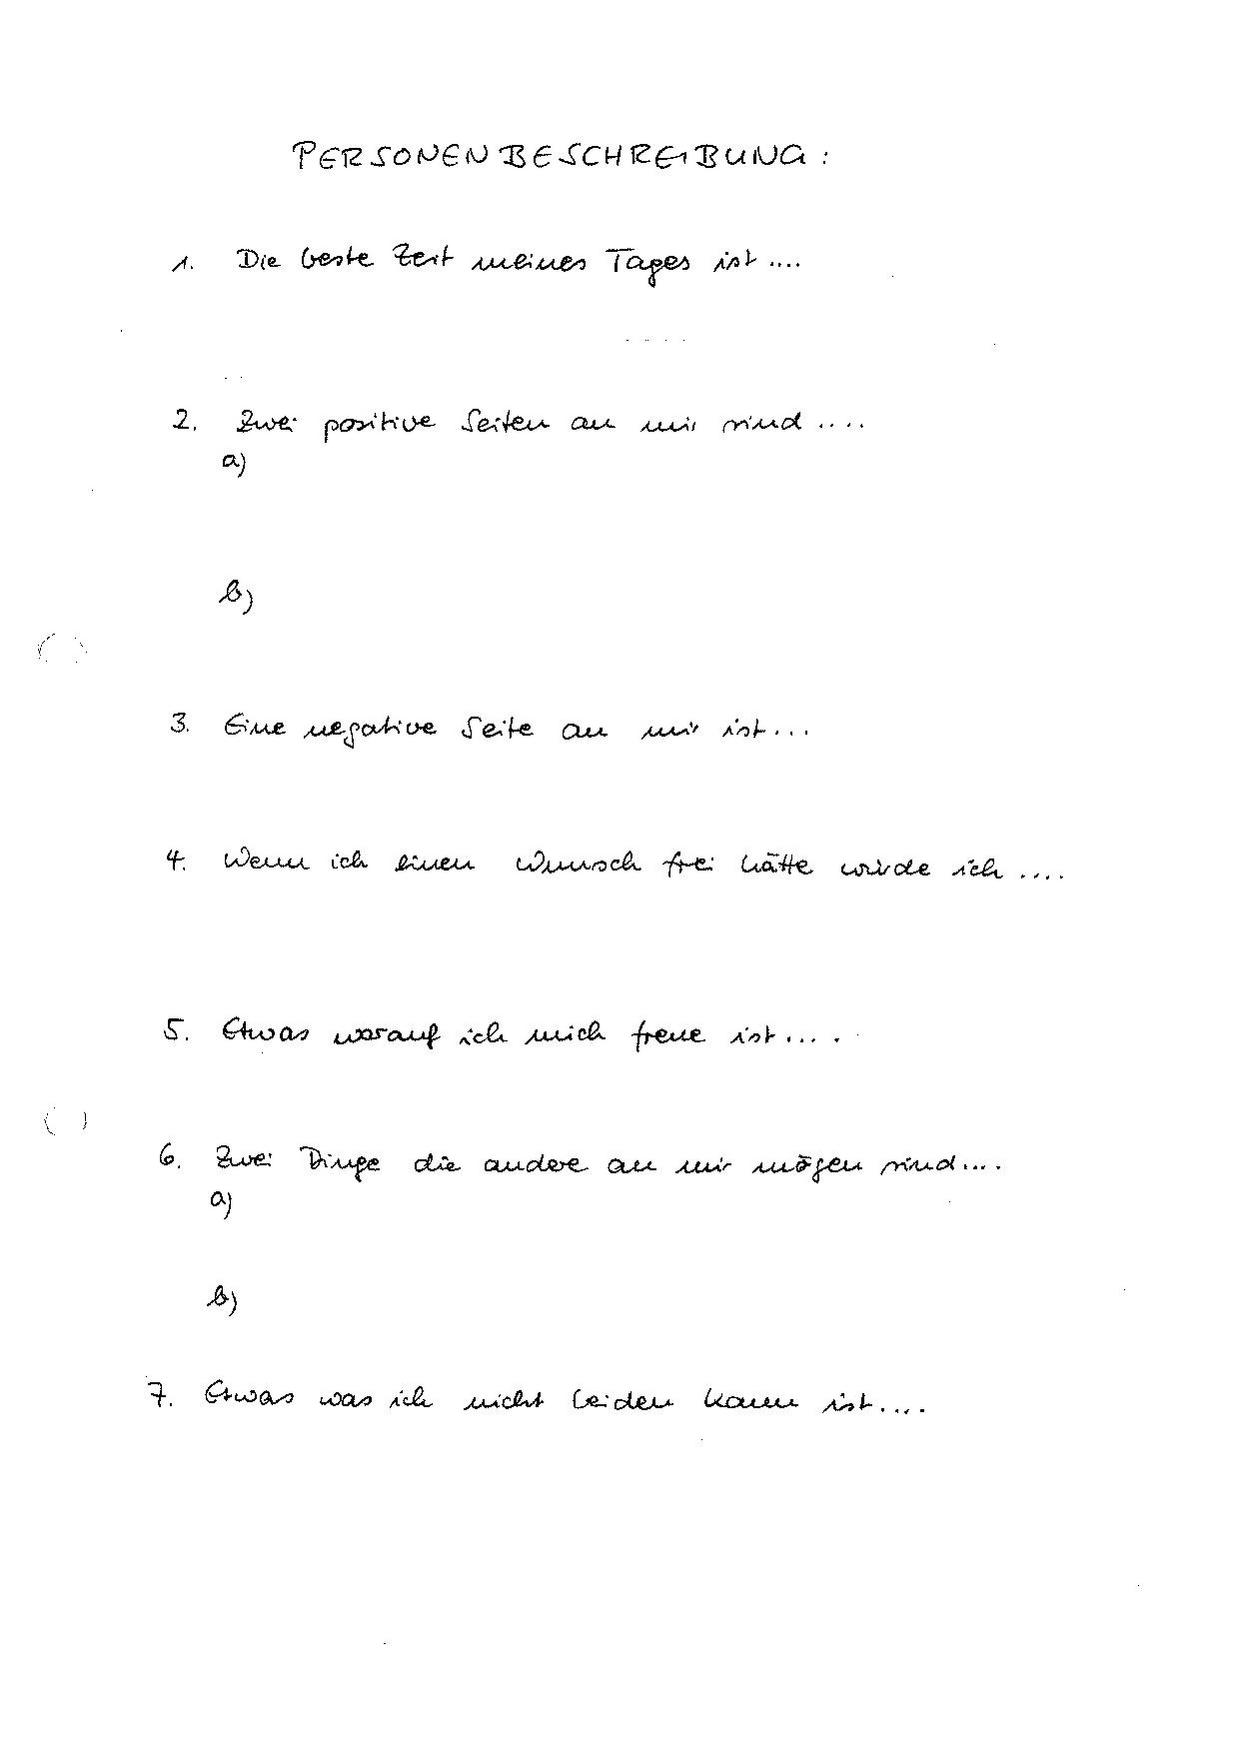 PERSONENBESCHREIBUNG:
1. Die beste Zeit meines Tages ist ....
2. Zwei positive Seiten an mir sind ....
a)
b)
3. Eine negative Seite an mir ist...
4. Wenn ich einen Wunsch frei hätte würde ich ....
5. Etwas worauf ich mich freue ist....
6. Zwei Dinge die andere an mir mögen sind....
a)
b)
7. Etwas was ich nicht leiden kann ist....